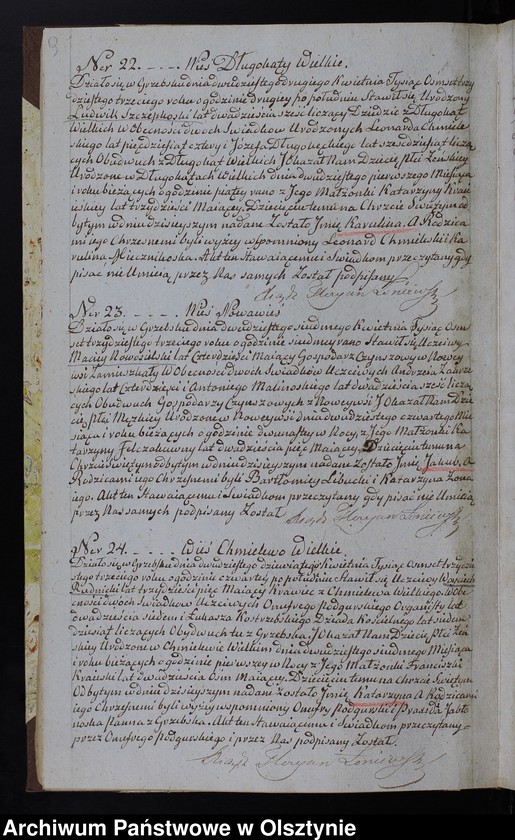 Ner 22. - - - - Wieś Długokąty Wielkie.
Działo się w Grzebsku dnia dwudziestego drugiego Kwietnia Tysiąc Osmset trzy
dziestego trzeciego roku o godzinie drugiey po południu Stawił się Urodzony
Ludwik Szczepkoski lat dwadzieścia sześć liczący Dziedzic z Długokąt
Wielkich w Obecności dwóch Swiadków Urodzonych Leonarda Chmiele
skiego lat pięćdziesiąt cztery i Józefa Długokęckiego lat sześćdziesiąt licza
cych Obudwuch z Długokąt Wielkich J Okazał Nam Dziecię płci Zeńskiey
Urodzone w Długokątach Wielkich dnia dwudziestego pierwszego Miesiąca
i roku bieżących o godzinie piątey rano z Jego Małżonki Katarzyny
lat trzydzieści Maiącey, Dziecięciu temu na Chrzcie Swiętym od
bytym w dniu dzisieyszym nadane Zostało Jmię Karulina. A Rodzica
mi jego Chrzesnemi byli wyżey wspomniony Leonard Chmieleski i Ka
rulina Miecznikoska. Akt ten Stawaiącemu i Swiadkom przeczytany gdy
pisać nie Umieią przez Nas samych Został podpisany
Xiądz Floryan
Ner 23. - - - - - Wieś Nowawieś
Działo się w Grzebsku dnia dwudziestego siodmego Kwietnia Tysiąc Osm
set trzydziestego trzeciego roku o godzinie siodmey rano Stawił się Uczciwy
Maciey Nowosielski lat Czterdzieści Maiący Gospodarz Czynszowy w Nowey
wsi Zamieszkały W Obecności dwóch Swiadków Uczciwych Andrzeia
lat Czterdzieści i Antoniego Malinoskiego lat dwadzieścia sześć licza
cych Obudwuch Gospodarzy Czynszowych z Noweywsi J Okazał Nam Dzie
cię płci Męzkiey Urodzone w Noweywsi dnia dwudziestego czwartego Mie
siąca i roku bieżących o godzinie dwunastey w Nocy z Jego Małżonki Ka
tarzyny lat dwadzieścia pięć Maiącey, Dziecięciu temu na
Chrzcie Swiętym Odbytym w dniu dzisieyszym nadane Zostało Jmię Jakub, A
Rodzicami jego Chrzesnemi byli Bartłomiey i Katarzyna Zona
jego. Akt ten Stawaiącemu i Swiadkom przeczytany gdy pisać nie Umieią
przez Nas samych podpisany Został
Xiądz Floryan
Ner 24. - - - - - Wieś Chmielewo Wielkie.
Działo się w Grzebsku dnia dwudziestego dziewiątego Kwietnia Tysiąc Osmset trzydzie
stego trzeciego roku o godzinie czwartey po południu Stawił się Uczciwy Woyciech
Rudnicki lat trzydzieści pięć Maiący Krawiec z Chmielewa Wielkiego. W Obe
cności dwóch Swiadków Uczciwych Onufrego Podgurskiego Organisty lat
dwadzieścia siedem i Łukasza Kostrzebskiego Dziada Kościelnego lat siedem
dziesiąt liczących Obydwuch tu z Grzebska, J Okazał Nam Dziecię płci Zen
skiey Urodzone w Chmielewie Wielkim dnia dwudziestego siodmego Miesiąca
i roku bieżących o godzinie pierwszey w Nocy z Jego Małżonki Franciszki
lat dwadzieścia Osm Maiącey, Dziecięciu temu na chrzcie Swiętym
Odbytym w dniu dzisieyszym nadane Zostało Jmię Katarzyna A Rodzicami
jego Chrzesnemi byli wyżey wspomniony Onufry Podgurski i Praxeda Jabło
noska Panna z Grzebska. Akt ten Stawaiącemu i Swiadkom przeczytany
przez Onufrego Podgurskiego i przez Nas podpisany Został.
Xiądz Floryan
Archiwum Państwowe w Olsztynie